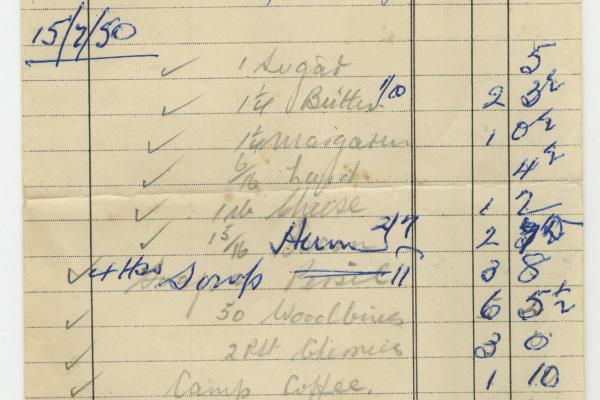 15/7/50
✓ 1 Sugar 5
✓ 1¼ Butter 1/0 2 3½
✓ 1¼ Margarine 1 0½
✓ 6/16 Lard 4½
✓ Cheese 1 2
✓ 1 5/16 2/7 2
✓ Soap 11 3 8
✓ 50 Woodbines 6 5½
✓ 2 3 0
✓ Camp Coffee. 1 10